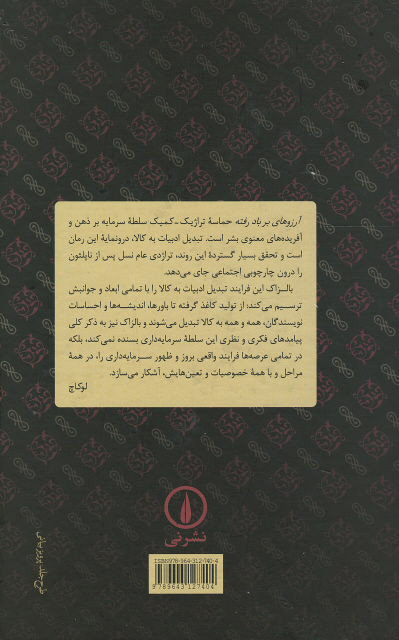 آرزوهای بر باد رفته حماسهٔ تراژیک - کمیک سلطهٔ سرمایه بر ذهن و
آفریده‌های معنوی بشر است. تبدیل ادبیات به کالا، درونمایهٔ این رمان
است و تحقق بسیار گستردهٔ این روند، تراژدی عام نسل پس از ناپلئون
را درون چارچوبی اجتماعی جای می‌دهد.
بالـزاک این فرایند تبدیل ادبیات به کالا را با تمامی ابعاد و جوانبش
ترسیم می‌کند: از تولید کاغذ گرفته تا باورها، اندیشه‌ها و احساسات
نویسندگان، همه و همه به کالا تبدیل می‌شوند و بالزاک نیز به ذکر کلی
پیامدهای فکری و نظری این سلطهٔ سرمایه‌داری بسنده نمی‌کند، بلکه
در تمامی عرصه‌ها فرایند واقعی بروز و ظهور سرمایه‌داری را، در همهٔ
مراحل و با همهٔ خصوصیات و تعین‌هایش، آشکار می‌سازد.
لوکاچ
نشرنی
ISBN 978-964-312-740-4
9 789643 127404
طرح جلد: پرویز بیانی